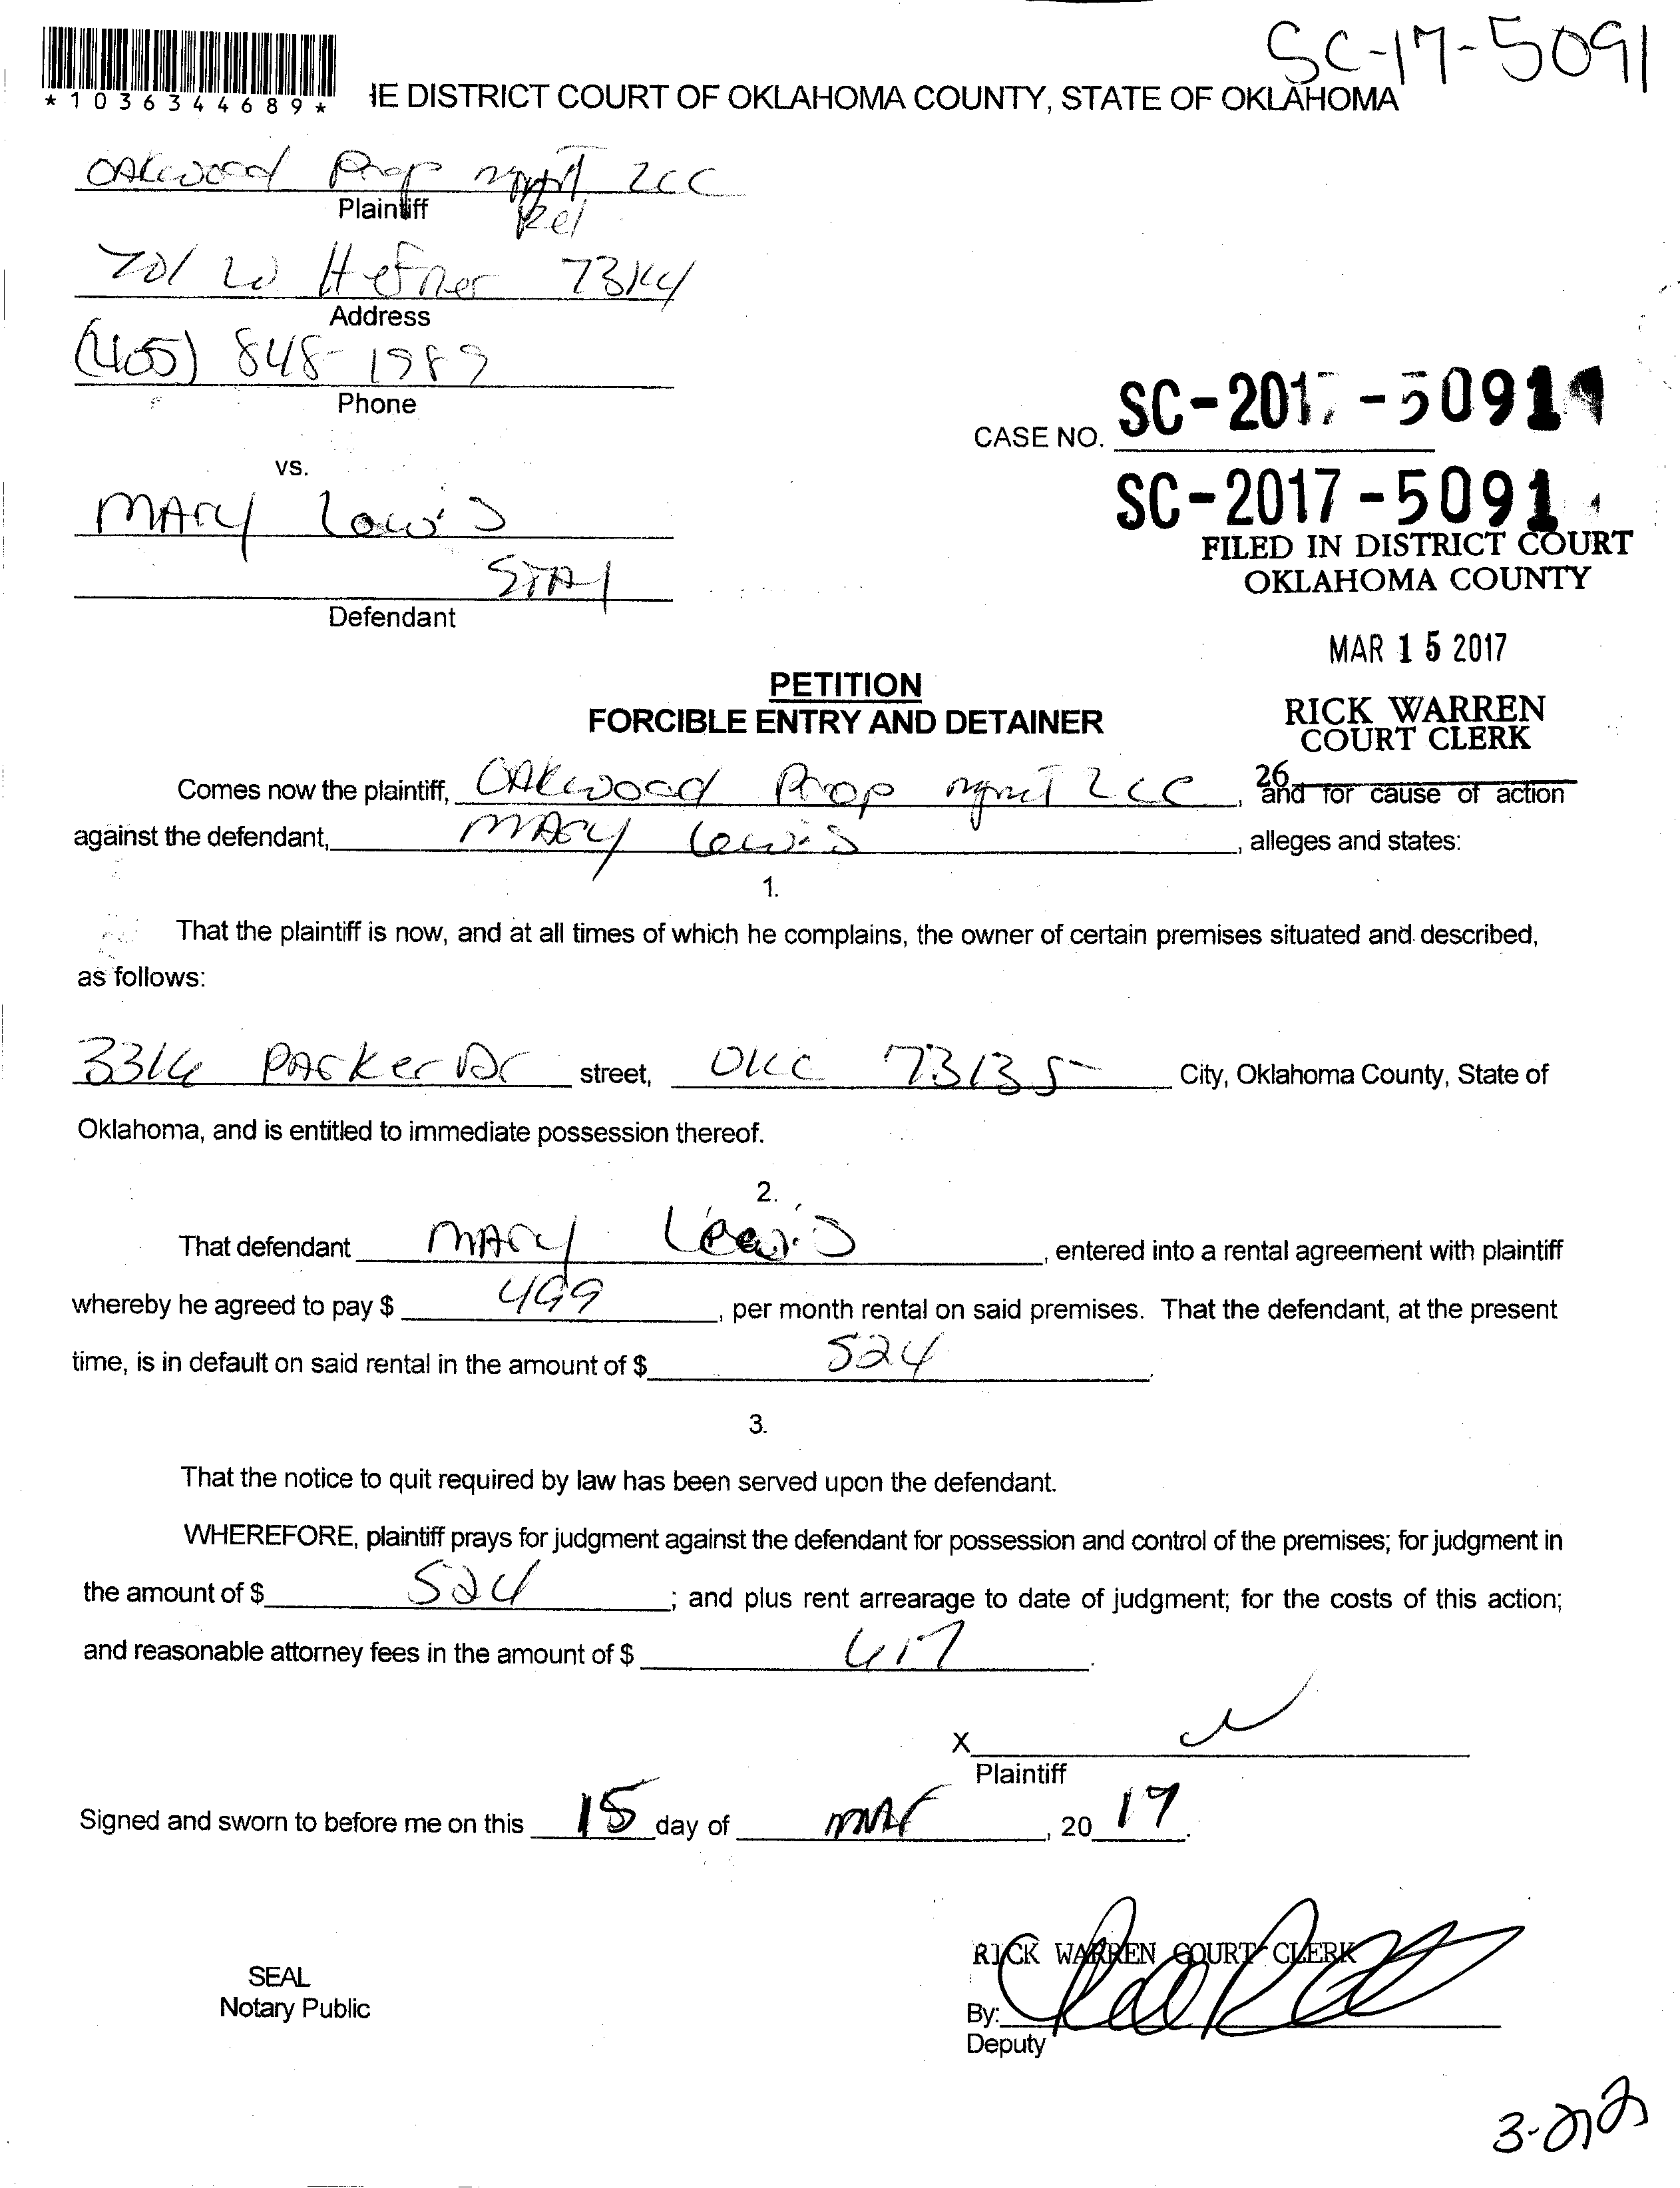 SC-17-5091
*1036344689*
IE DISTRICT COURT OF OKLAHOMA COUNTY, STATE OF OKLAHOMA
OAkwood Prop mgmt LLC
Plaintiff
Rel
701 W Hefner 73114
Address
(405) 848-1989
Phone
SC-2017-5091
CASE NO.
vs.
SC-2017-5091
MARY Lewis
FILED IN DISTRICT COURT
OKLAHOMA COUNTY
Defendant
MAR 15 2017
PETITION
FORCIBLE ENTRY AND DETAINER
RICK WARREN
COURT CLERK
26
Comes now the plaintiff, OAkwood Prop mgmt LLC, and for cause of action
against the defendant, MARY Lewis, alleges and states:
1.
That the plaintiff is now, and at all times of which he complains, the owner of certain premises situated and described,
as follows:
3314 PArker Dr street, OKC 73135 City, Oklahoma County, State of
Oklahoma, and is entitled to immediate possession thereof.
2.
That defendant MARY Lewis, entered into a rental agreement with plaintiff
whereby he agreed to pay $ 499, per month rental on said premises. That the defendant, at the present
time, is in default on said rental in the amount of $ 524.
3.
That the notice to quit required by law has been served upon the defendant.
WHEREFORE, plaintiff prays for judgment against the defendant for possession and control of the premises; for judgment in
the amount of $ 524; and plus rent arrearage to date of judgment; for the costs of this action;
and reasonable attorney fees in the amount of $
X
Plaintiff
Signed and sworn to before me on this 15 day of mAr, 20 17.
RICK WARREN COURT CLERK
SEAL
Notary Public
By:
Deputy